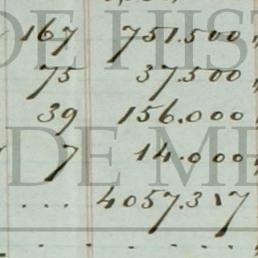 167 751.500 "
75 37.500 "
39 156.000 "
7 14.000 "
... 4057.317
DE HIST
DE ME